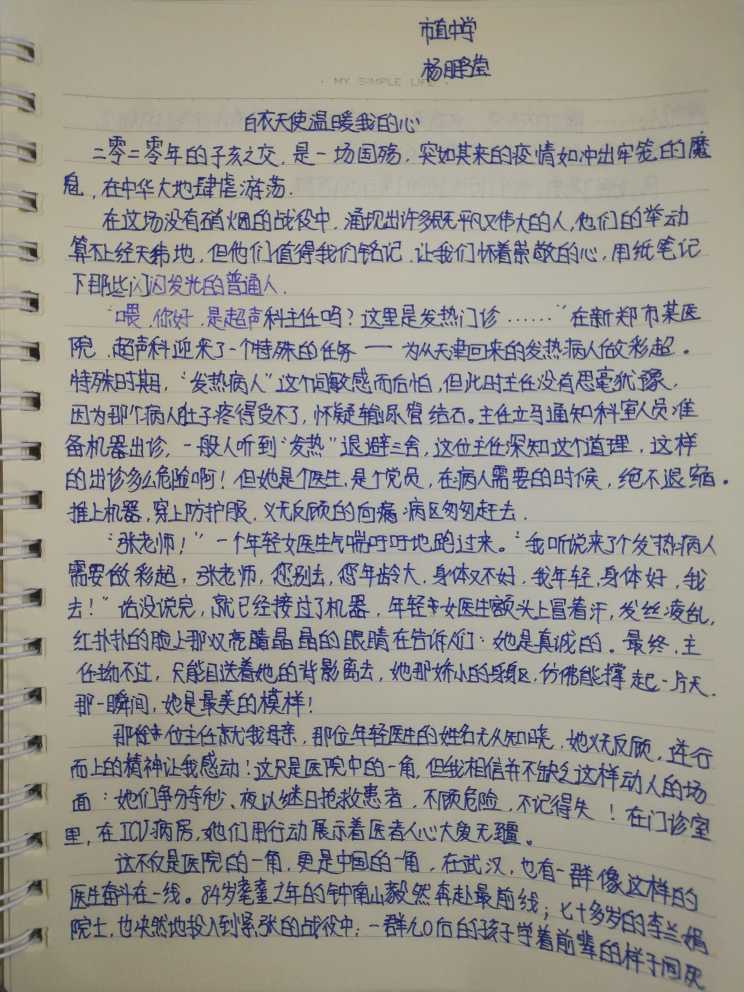 市直中学
杨鹏堂
· MY SIMPLE LIFE ·
白衣天使温暖我的心
二零二零年的子亥之交，是一场国殇，突如其来的疫情如冲出牢笼的魔
鬼，在中华大地肆虐游荡．
在这场没有硝烟的战役中，涌现出许多既平凡又伟大的人，他们的举动
算不上经天纬地，但他们值得我们铭记．让我们怀着崇敬的心，用纸笔记
下那些闪闪发光的普通人．
“喂，你好，是超声科主任吗？这里是发热门诊……”在新郑市某医
院，超声科迎来了一个特殊的任务——为从天津回来的发热病人做彩超。
特殊时期，“发热病人”这个词敏感而后怕，但此时主任没有思毫犹豫，
因为那个病人肚子疼得受不了，怀疑输尿管结石。主任立马通知科室人员准
备机器出诊，一般人听到“发热”退避三舍，这位主任深知这个道理，这样
的出诊多么危险啊！但她是个医生，是个党员，在病人需要的时候，绝不退缩。
推上机器，穿上防护服，义无反顾的向病区匆匆赶去．
“张老师！”一个年轻女医生气喘吁吁地跑过来。“我听说来了个发热病人
需要做彩超，张老师，您别去，您年龄大，身体又不好，我年轻，身体好，我
去！”话没说完，就已经接过了机器，年轻女医生额头上冒着汗，发丝凌乱，
红扑扑的脸上那双亮晶晶的眼睛在告诉人们：她是真诚的。最终，主
任拗不过，只能目送着她的背影离去，她那娇小的身躯，仿佛能撑起一片天．
那一瞬间，她是最美的模样！
那位主任就我母亲，那位年轻医生的姓名无从知晓，她义无反顾，逆行
而上的精神让我感动！这只是医院中的一角，但我相信并不缺乏这样动人的场
面：她们争分夺秒、夜以继日抢救患者，不顾危险，不记得失！在门诊室
里，在ICU病房，她们用行动展示着医者人心大爱无疆。
这不仅是医院的一角，更是中国的一角，在武汉，也有一群像这样的
医生奋斗在一线。84岁耄耋之年的钟南山毅然奔赴最前线；七十多岁的李兰娟
院士，也决然地投入到紧张的战役中；一群90后的孩子学着前辈的样子同死